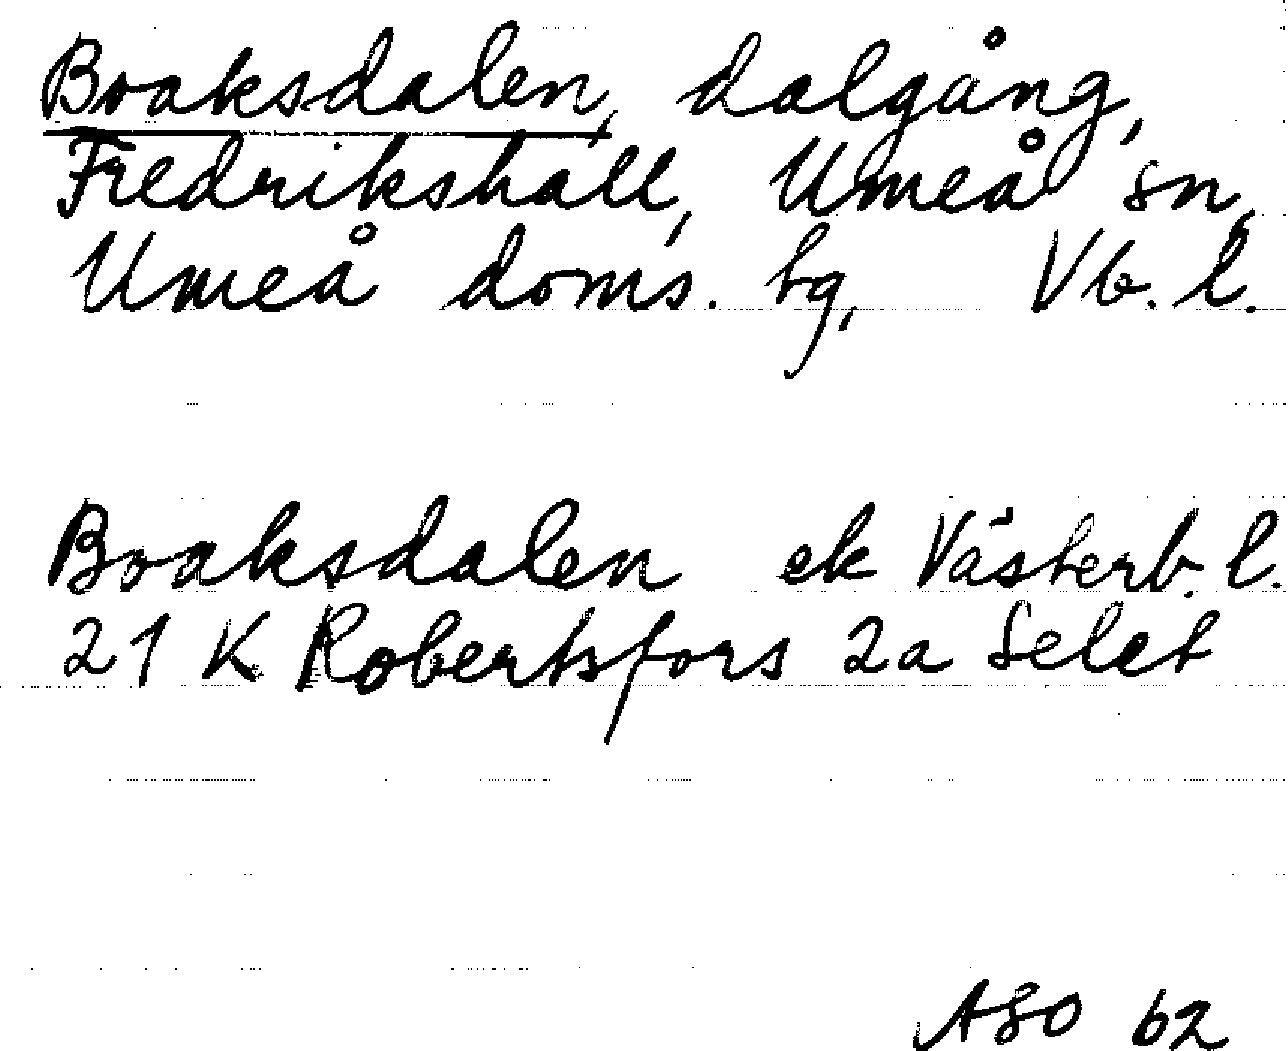 Boaksdalen, dalgång,
Fredrikshall, Umeå sn,
Umeå doms. tg, Vb. l.
Boaksdalen ek Västerb. l.
21 K Robertsfors 2a Selet
ASO 62